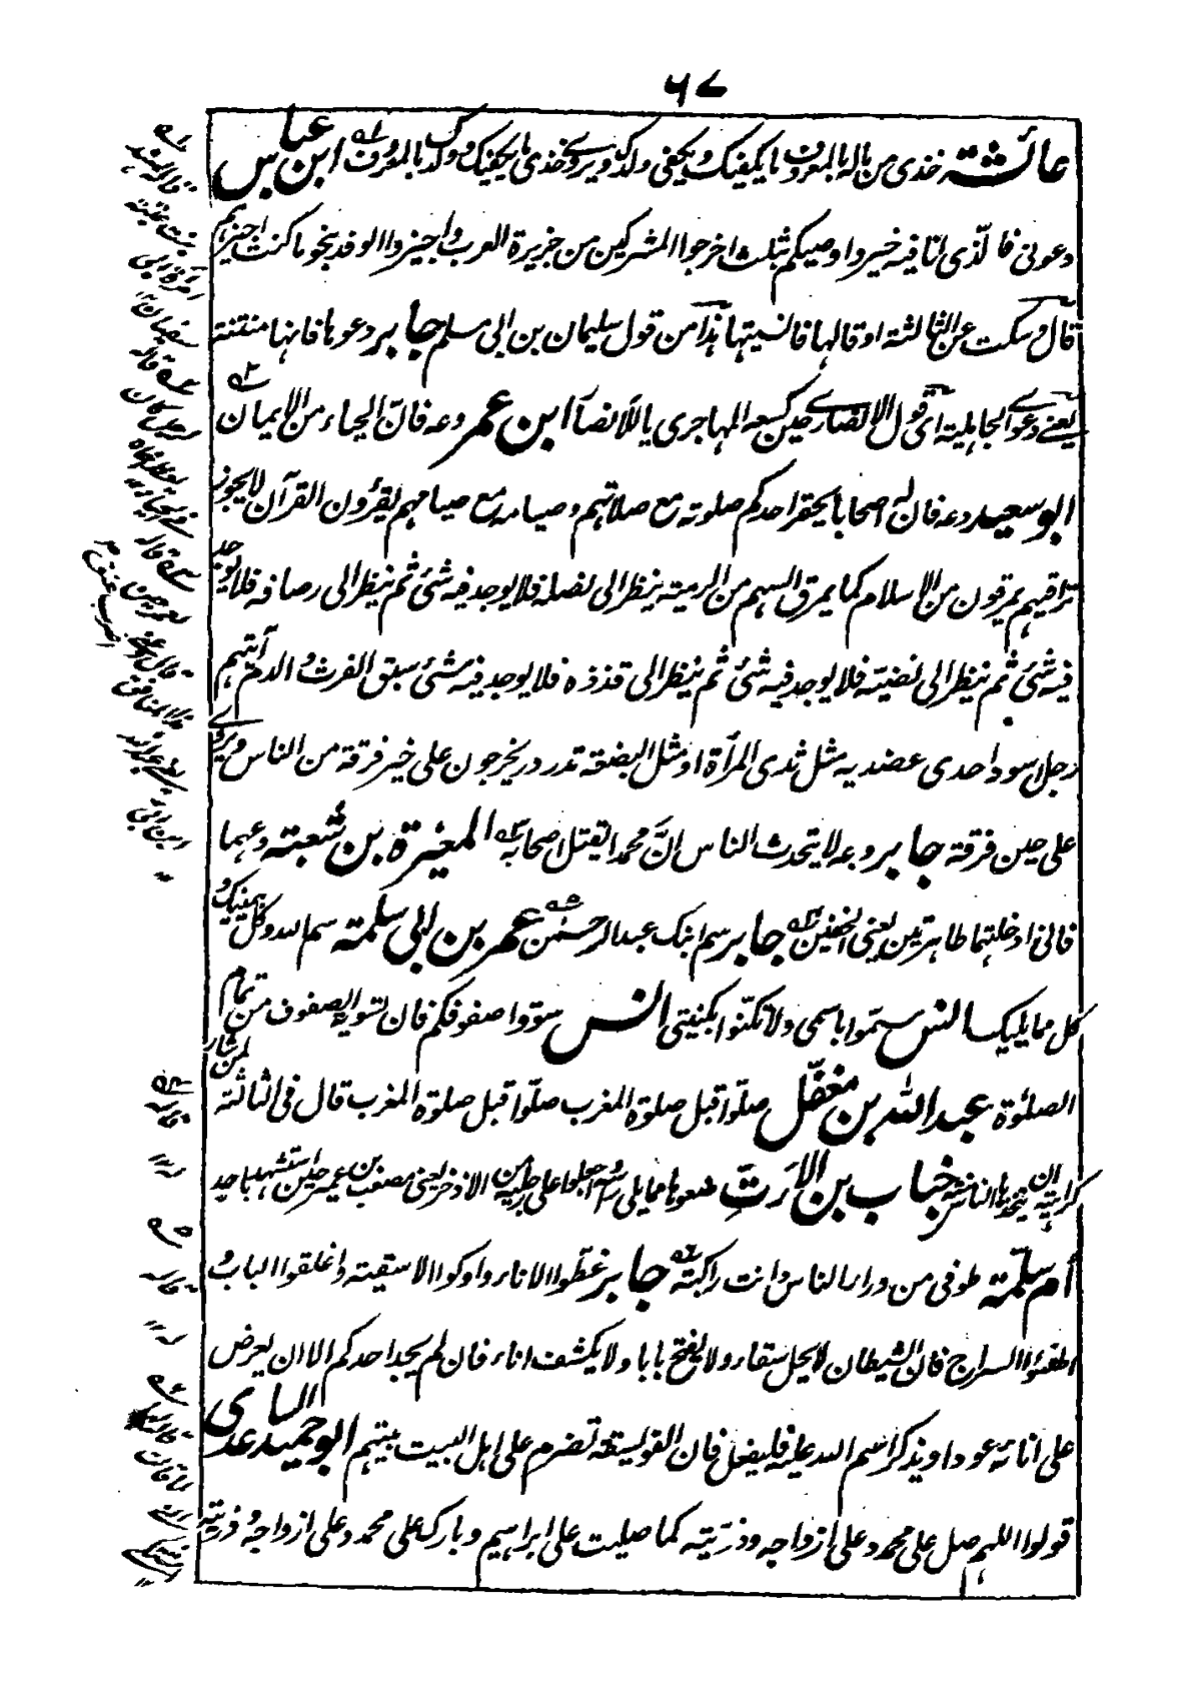 ٦٧
عائشة خذى من ماله بالمعروف ما يكفيك ويكفى ولدك ويروى خذى ما يكفيك وولدك بالمعروف ابن عباس
دعونى فالذى انا فيه خير واوصيكم بثلث اخرجوا المشركين من جزيرة العرب واجيزوا الوفد بنحو ما كنت اجيزهم
قال وسكت عن الثالثة او قالها فانسيتها هذا من قول سليمان بن ابى مسلم جابر دعوها فانها منتنة
يعنى دعوى الجاهلية اى قول الانصارى حين كسعه المهاجرى يا للانصار ابن عمر دعه فان الحياء من الايمان
ابو سعيد دعه فان له اصحابا يحقر احدكم صلوته مع صلاتهم وصيامه مع صيامهم يقرؤن القرآن لا يجوز
تراقيهم يمرقون من الاسلام كما يمرق السهم من الرمية ينظر الى نصله فلا يوجد فيه شئ ثم ينظر الى رصافه فلا يوجد
فيه شئ ثم ينظر الى نضيته فلا يوجد فيه شئ ثم ينظر الى قذذه فلا يوجد فيه شئ سبق الفرث والدم آيتهم
رجل اسود احدى عضديه مثل ثدى المرأة او مثل البضعة تدردر يخرجون على خير فرقة من الناس ويروى
على حين فرقة جابر دعه لا يتحدث الناس ان محمدا يقتل اصحابه المغيرة بن شعبة دعهما
فانى ادخلتهما طاهرتين يعنى الخفين جابر سم ابنك عبد الرحمن عمر بن ابى سلمة سم الله وكل بيمينك و
كل مما يليك انس سموا باسمى ولا تكنوا بكنيتى انس سووا صفوفكم فان تسوية الصفوف من تمام
الصلوة عبد الله بن مغفل صلوا قبل صلوة المغرب صلوا قبل صلوة المغرب قال فى الثالثة لمن شاء
كراهية ان يتخذها الناس سنة خباب بن الارت ضعوها مما يلى رأسه واجعلوا على رجليه من الاذخر يعنى مصعب بن عمير حين استشهد باحد
ام سلمة طوفى من وراء الناس وانت راكبة جابر غطوا الاناء واوكوا الاسقية واغلقوا الباب و
اطفئوا السراج فان الشيطان لا يحل سقاء ولا يفتح بابا ولا يكشف اناء فان لم يجد احدكم الا ان يعرض
على انائه عودا ويذكر اسم الله عليه فليفعل فان الفويسقة تضرم على اهل البيت بيتهم ابو حميد الساعدى
قولوا اللهم صل على محمد وعلى ازواجه وذريته كما صليت على ابراهيم وبارك على محمد وعلى ازواجه وذريته